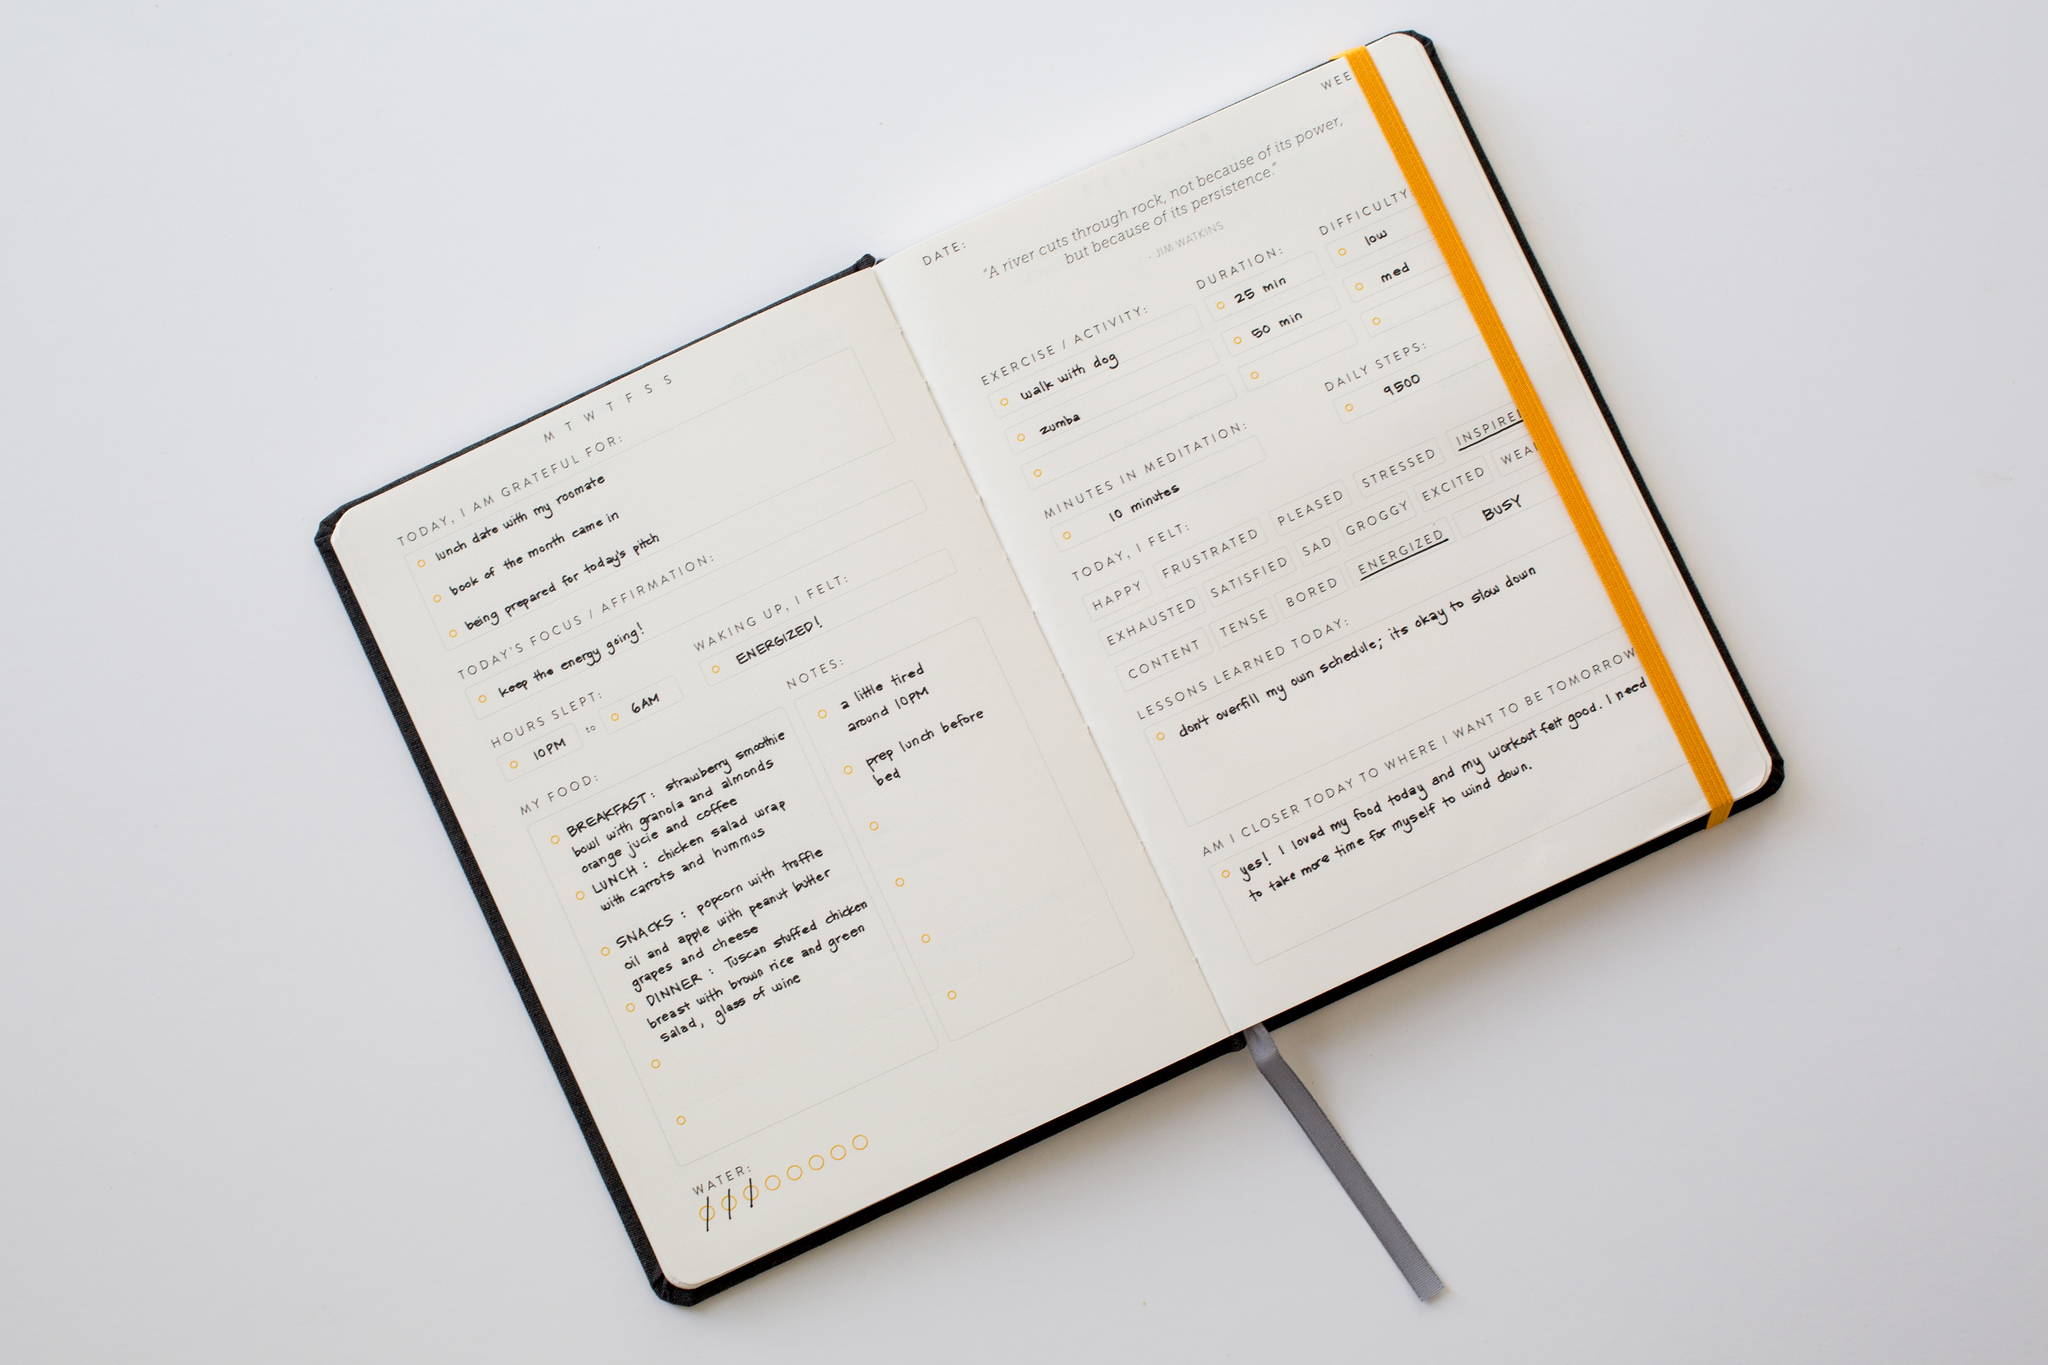 M T W T F S S
TODAY, I AM GRATEFUL FOR:
lunch date with my roomate
book of the month came in
being prepared for today's pitch
TODAY'S FOCUS / AFFIRMATION:
keep the energy going!
HOURS SLEPT:
10PM to 6AM
WAKING UP, I FELT:
ENERGIZED!
MY FOOD:
BREAKFAST: strawberry smoothie
bowl with granola and almonds
orange jucie and coffee
LUNCH: chicken salad wrap
with carrots and hummus
SNACKS: popcorn with truffle
oil and apple with peanut butter
grapes and cheese
DINNER: Tuscan stuffed chicken
breast with brown rice and green
salad, glass of wine
NOTES:
a little tired
around 10PM
prep lunch before
bed
WATER:
WEE
DATE:
"A river cuts through rock, not because of its power,
but because of its persistence."
- JIM WATKINS
EXERCISE / ACTIVITY: DURATION: DIFFICULTY
walk with dog 25 min low
zumba 50 min med
MINUTES IN MEDITATION:
10 minutes
DAILY STEPS:
9500
TODAY, I FELT:
HAPPY FRUSTRATED PLEASED STRESSED INSPIRE
EXHAUSTED SATISFIED SAD GROGGY EXCITED WEA
CONTENT TENSE BORED ENERGIZED BUSY
LESSONS LEARNED TODAY:
don't overfill my own schedule; its okay to slow down
AM I CLOSER TODAY TO WHERE I WANT TO BE TOMORROW
yes! I loved my food today and my workout felt good. I need
to take more time for myself to wind down.